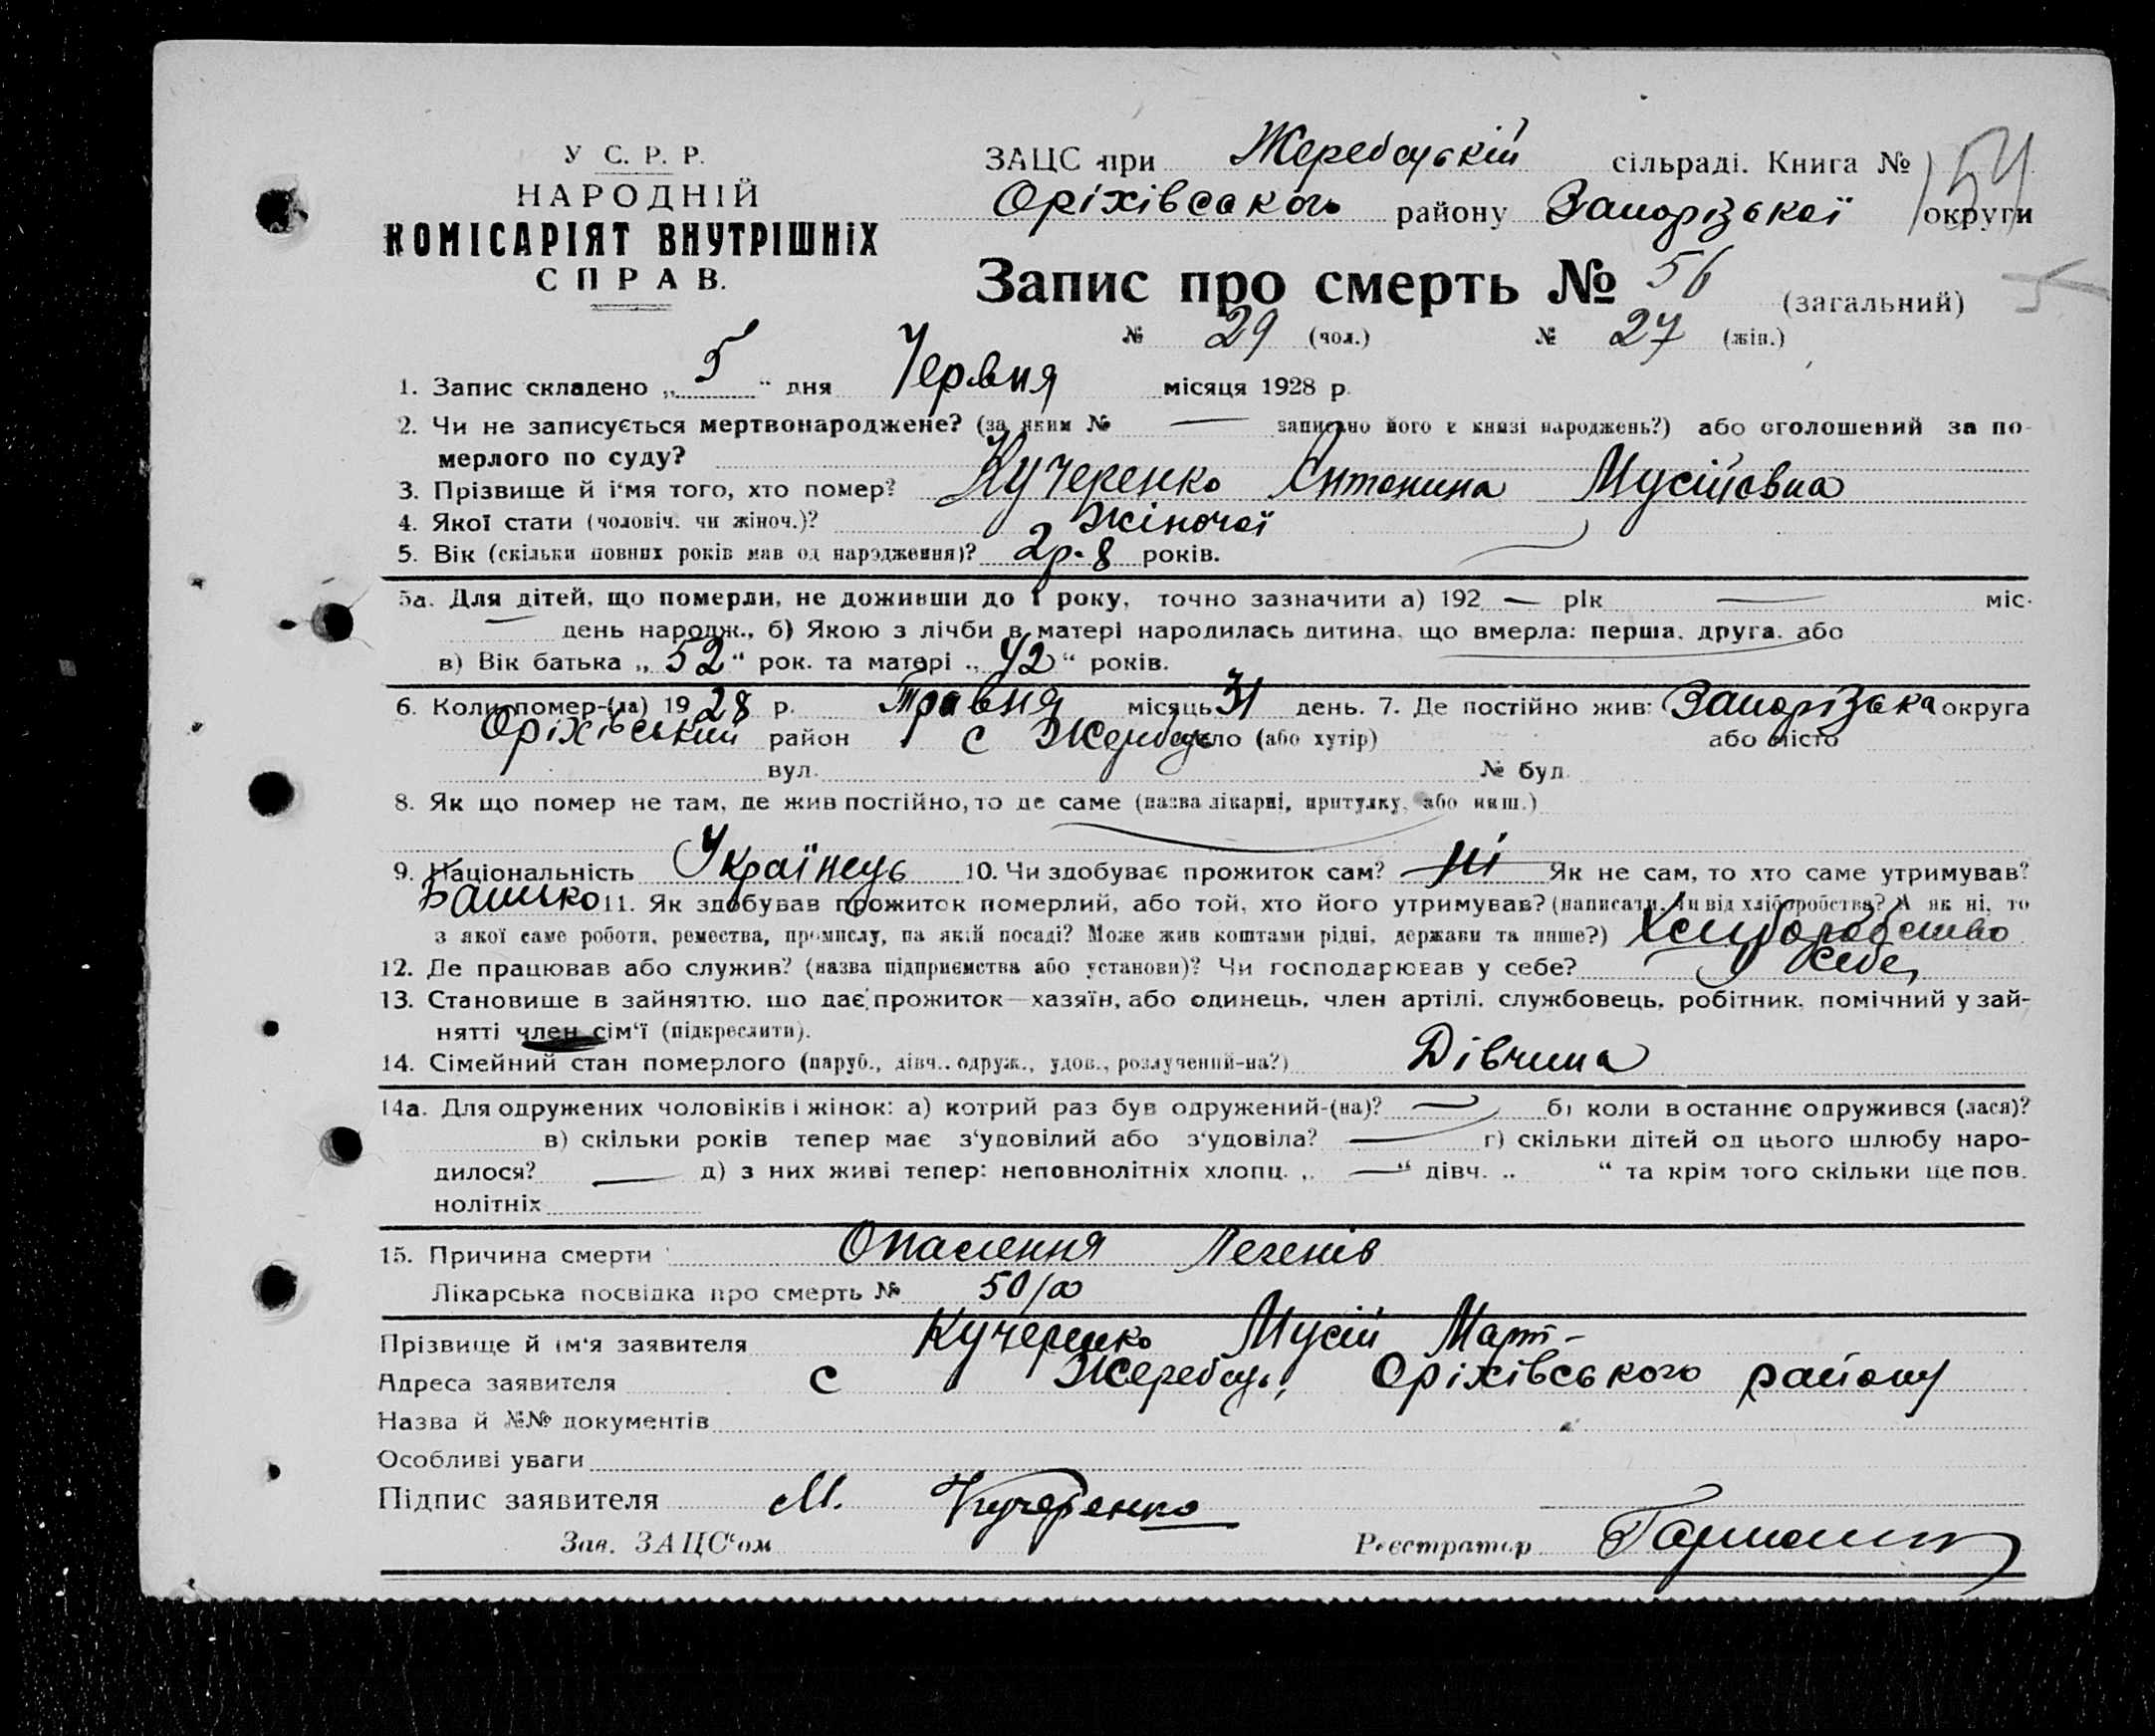 У С. Р. Р.
НАРОДНІЙ
КОМІСАРІЯТ ВНУТРІШНІХ
СПРАВ.
ЗАЦС при Жеребецькій сільраді. Книга №
154
Оріхівського району Запорізької округи
Запис про смерть № 56 (загальний)
№ 29 (чол.) № 27 (жін.)
1. Запис складено „ 5 “ дня Червня місяця 1928 р.
2. Чи не записується мертвонароджене? (за яким № — записано його в книзі народжень?) або оголошений за по-
мерлого по суду?
3. Прізвище й і'мя того, хто помер? Кучеренко Антонина Мусіївна
4. Якої стати (чоловіч. чи жіноч.)? Жіночої
5. Вік (скільки повних років мав од народження)? 2р. 8 років.
5а. Для дітей, що померли, не доживши до 1 року, точно зазначити а) 192 — рік — міс.
— день народж., б) Якою з лічби в матері народилась дитина, що вмерла: перша, друга, або
в) Вік батька „ 52 “ рок. та матері „ 42 “ років.
6. Коли помер-(ла) 1928 р. Травня місяць 31 день. 7. Де постійно жив: Запорізька округа
Оріхівський район с Жеребець село (або хутір) або місто
вул. № буд.
8. Як що помер не там, де жив постійно, то де саме (назва лікарні, притулку, або инш.)
9. Національність Українець 10. Чи здобуває прожиток сам? ні Як не сам, то хто саме утримував?
Батько 11. Як здобував прожиток померлий, або той, хто його утримував? (написати, чи від хліборобства? А як ні, то
з якої саме роботи, ремества, промислу, на якій посаді? Може жив коштами рідні, держави та инше?) Хліборобство
12. Де працював або служив? (назва підприємства або установи)? Чи господарював у себе? У себе
13. Становище в зайняттю, що дає прожиток—хазяїн, або одинець, член артілі, службовець, робітник, помічний у зай-
нятті член сім'ї (підкреслити).
14. Сімейний стан померлого (паруб., дівч., одруж., удов., розлучений-на?) Дівчина
14а. Для одружених чоловіків і жінок: а) котрий раз був одружений-(на)? — б) коли в останнє одружився (лася)?
в) скільки років тепер має з'удовілий або з'удовіла? — г) скільки дітей од цього шлюбу наро-
дилося? — д) з них живі тепер: неповнолітніх хлопц. „ — “ дівч. „ “ та крім того скільки ще пов.
нолітніх
15. Причина смерти Опалення Легенів
Лікарська посвідка про смерть №
Прізвище й ім'я заявителя Кучеренко Мусій Март-
Адреса заявителя с Жеребець, Оріхівського району
Назва й №№ документів
Особливі уваги
Підпис заявителя М. Кучеренко
Зав. ЗАЦС'ом Реєстратор